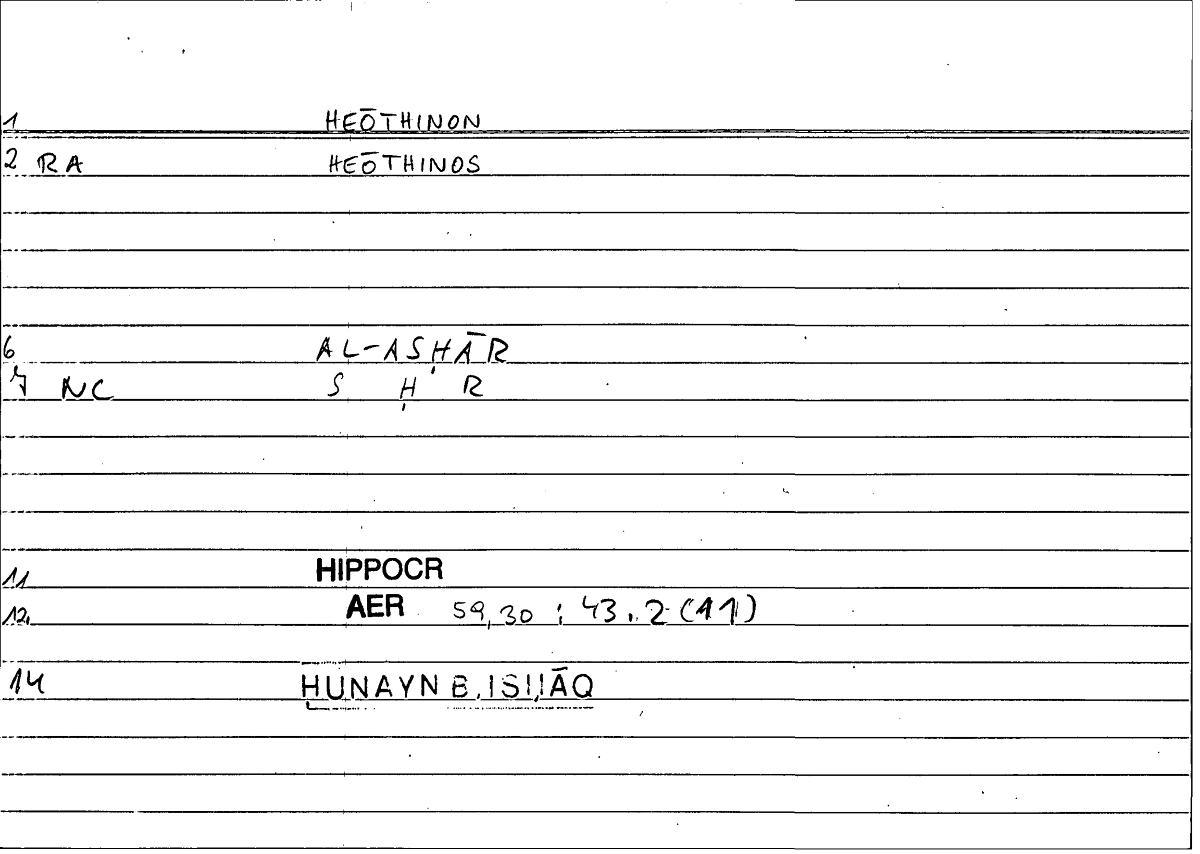 1 HEŌTHINON
2 RA HEŌTHINOS
6 AL-ASḤĀR
7 NC S Ḥ R
11 HIPPOCR
12. AER 59,30 : 43.2 (11)
14 ḤUNAYN B. ISḤĀQ